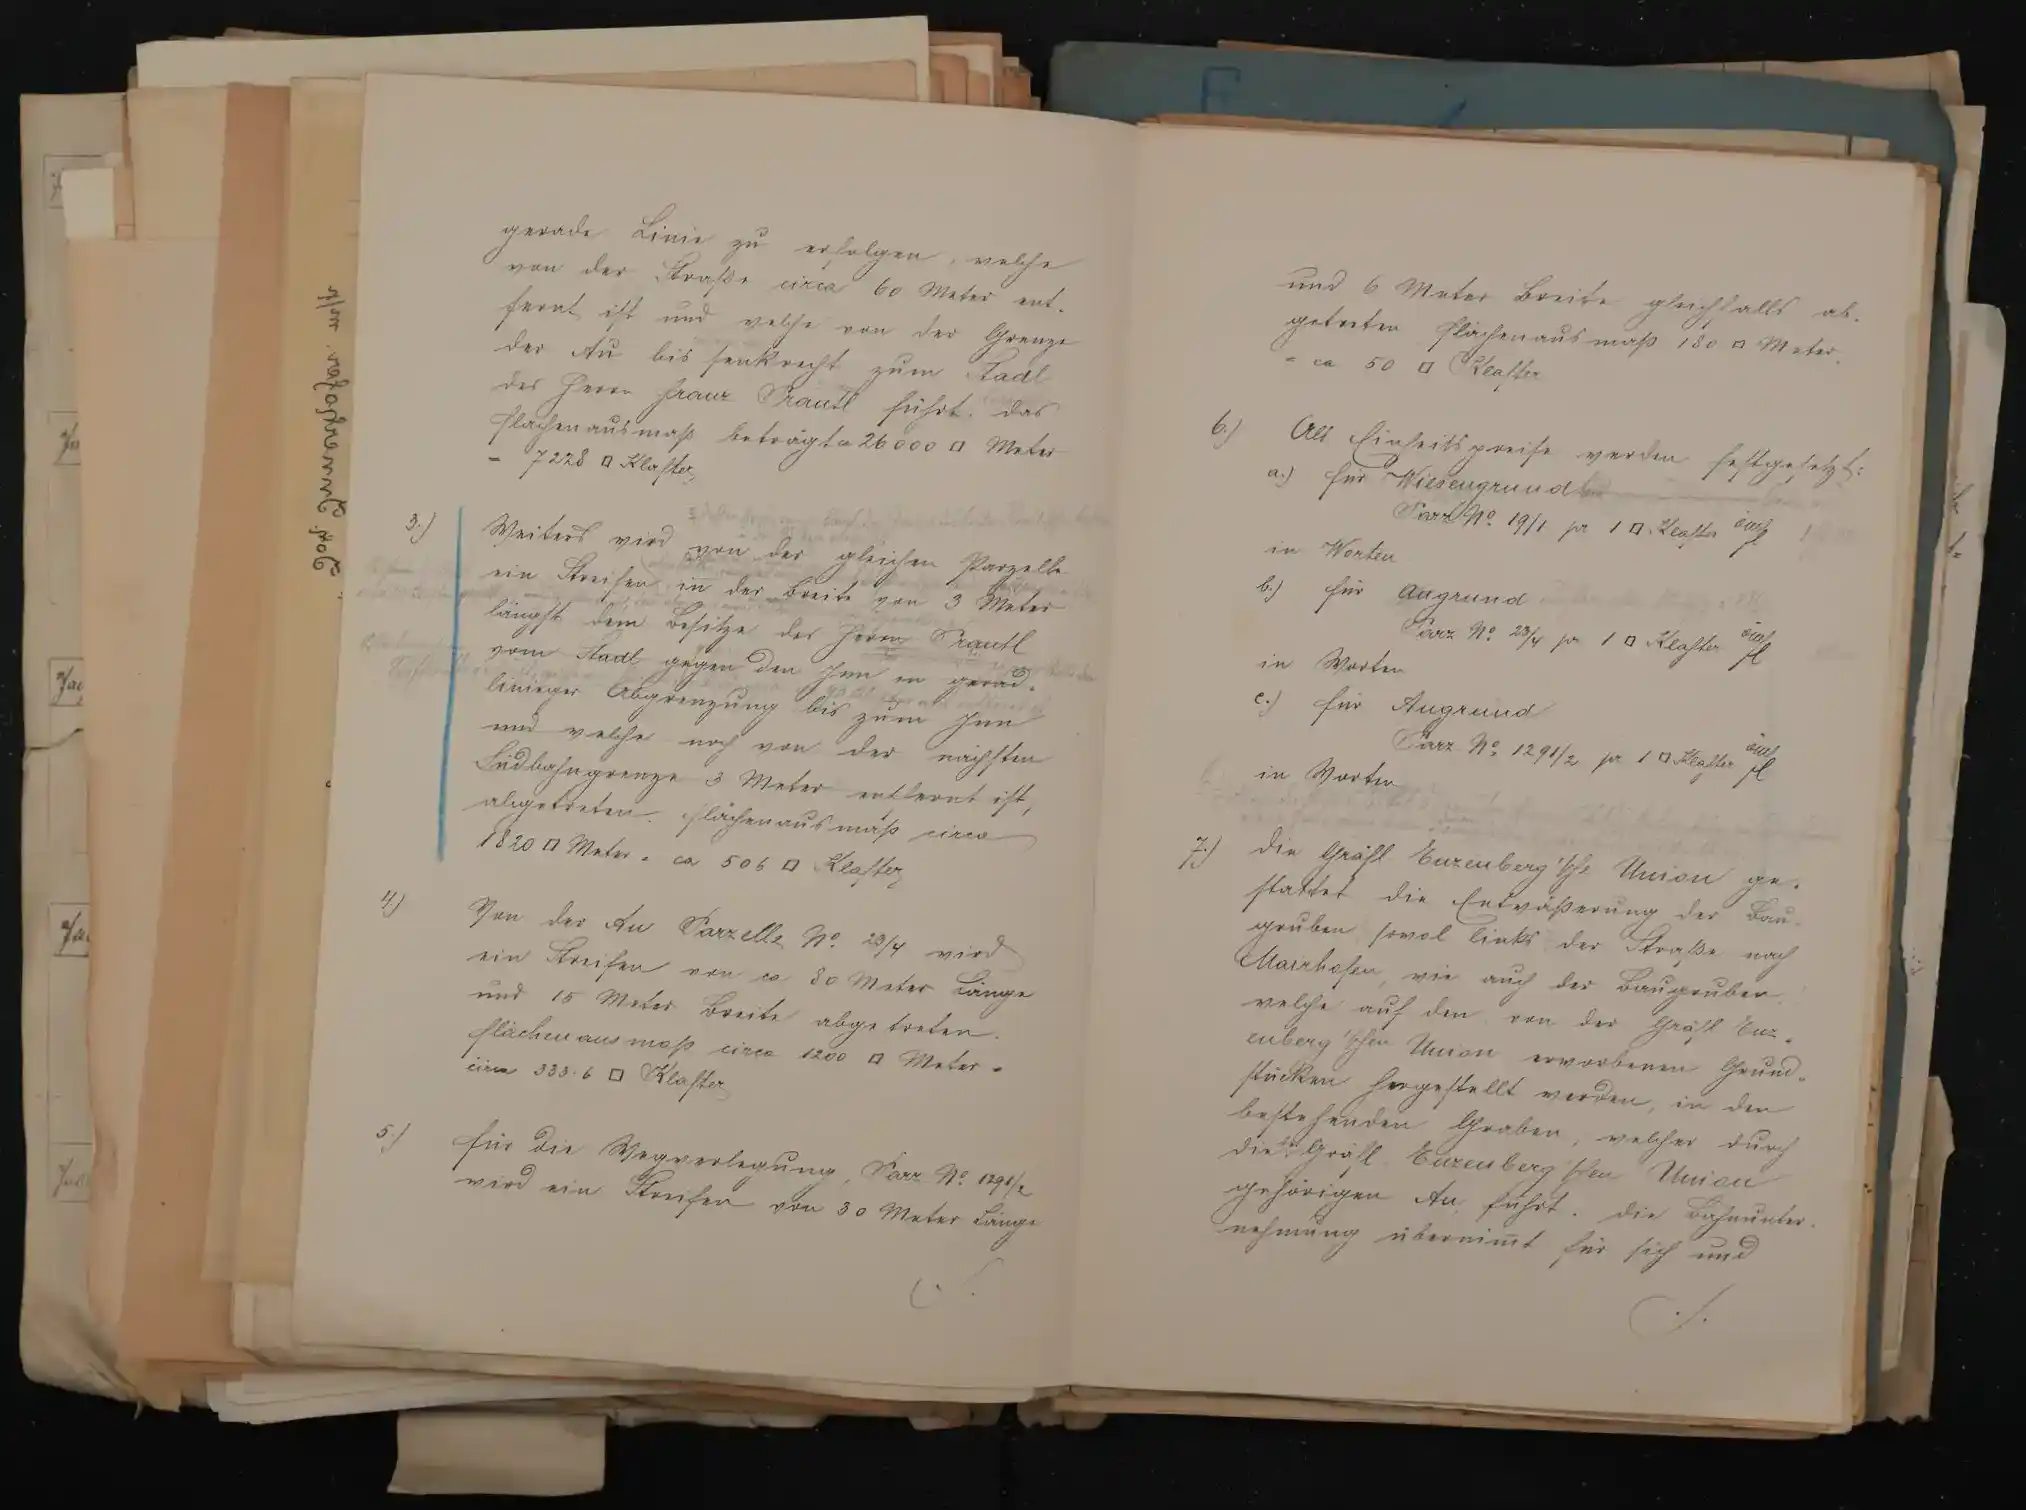 gerade Linie zu erfolgen, welche
von der Straße circa 60 Meter ent-
fernt ist und welche von der Grenze
der Au bis senkrecht zum Stadl
des Herrn Franz Prantl führt. das
Flächenausmaß beträgt ca 26000 □ Meter
= 7228 □ Klafter
3.) Weiters wird von der gleichen Parzelle
ein Streifen in der Breite von 3 Meter
längst dem Besitze des Herrn Prantl
vom Stadl gegen den Inn in gerad-
liniger Abgrenzung bis zum Inn
und welche noch von der nächsten
Südbahngrenze 3 Meter entfernt ist,
abgetreten. Flächenausmaß circa
1820 □ Meter = ca 506 □ Klafter
4.) Von der Au Parzelle No. 23/4 wird
ein Streifen von ca 80 Meter Länge
und 15 Meter Breite abgetreten.
Flächenausmaß circa 1200 □ Meter =
circa 333.6 □ Klafter
5.) Für die Wegverlegung, Parz No. 1291/2
wird ein Streifen von 30 Meter Länge
und 6 Meter Breite gleichfalls ab-
getreten Flächenausmaß 180 □ Meter
= ca 50 □ Klafter
6.) Als Einheitspreise werden festgesetzt:
a.) für Wiesengrund
Parz No. 19/1 pr 1 □ Klafter fl
in Worten
b.) für Augrund
Parz No. 23/4 pr 1 □ Klafter fl
in Worten
c.) für Augrund
Parz No. 1291/2 pr 1 □ Klafter fl
in Worten
7.) die Gräfl Enzenberg'sche Union ge-
stattet die Entwäßerung der Bau-
gruben sowol links der Straße nach
Mairhofen, wie auch der Baugruben
welche auf den von der Gräfl Enz-
enberg'schen Union erworbenen Grund-
stücken hergestellt werden, in den
bestehenden Graben, welcher durch
die Gräfl Enzenberg'schen Union
gehörigen Au führt. die Bahnunter-
nehmung übernimmt für sich und